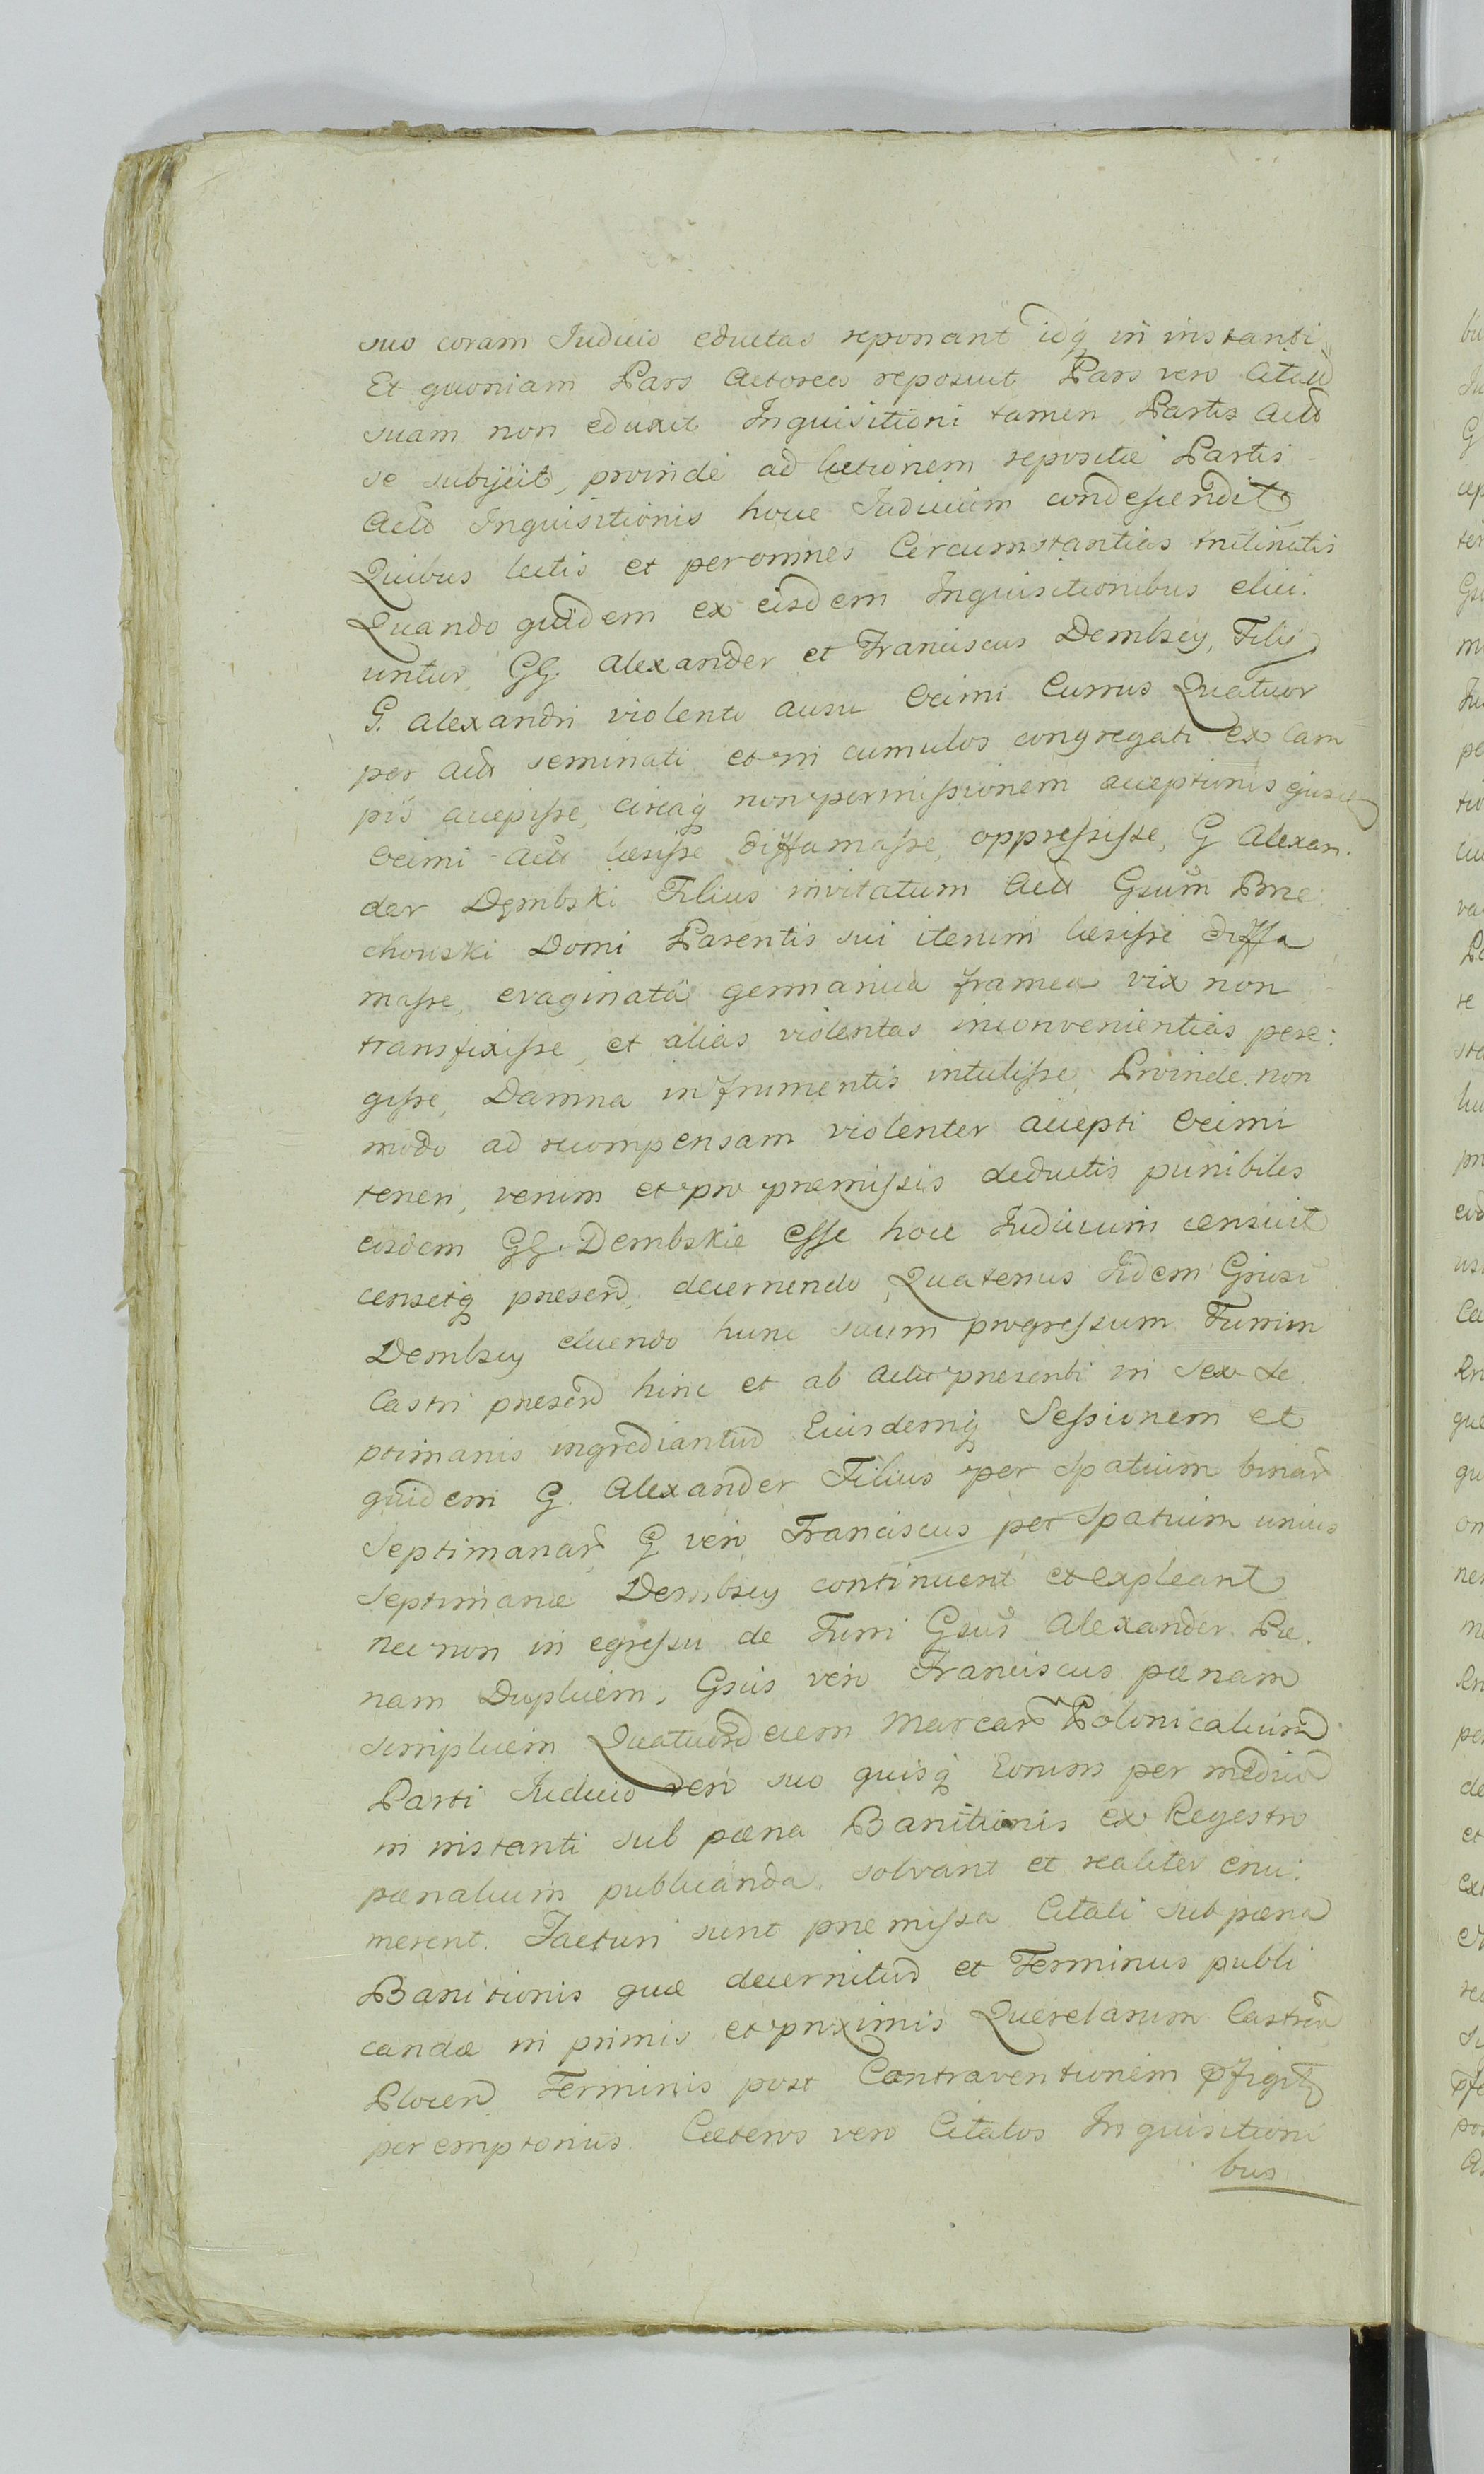 suo coram Iudicio eductas reponant idq. in instanti
Et quoniam Pars Actorea reposuit Pars vero Citata
suam non eduxit Inquisitioni tamen Partis Actt
se subijcit, proinde ad lectionem repositæ Partis
Actt Inquisitionis hocce Iudicium condescendit
Quibus lectis et per omnes Circumstantias trutinatis
Quando quidem ex eisdem Inquisitionibus elici:
untur, GG. Alexander et Franciscus Dembscy, Filij
G. Alexandri violento ausu Decimi Currus Quatuor
per Actt seminati et in cumulos congregati ex Cam
pis accepisse, circaq. non permissionem acceptionis ejusd
Decimi Actt læsisse diffamasse, oppressisse, G Alexan:
der Dembski Filius invitatum Actt Gsum Brze:
chowski Domi Parentis sui iterum læsisse diffa
masse, evaginatâ germanica framea vix non
transfixisse, et alias violentas inconvenientias pere:
gisse, Damna in frumentis intulisse, Proinde non
modo ad recompensam violenter accepti Decimi
teneri, verum et pro præmissis deductis punibiles
eosdem GG. Dembskie esse hocce Iudicium censuit
censetq. præsen, decernendo, Quatenus Iidem Gsi
Dembscy eluendo hunc suum progressum Turrim
Castri præsen hinc et ab actu præsenti in sex Se
ptimanis ingrediantur Eiusdemq. Sessionem et
quidem G. Alexander Filius per spatium binar
Septimanar, G vero Franciscus per Spatium unius
Septimanæ Dembscy continuent et expleant
nec non in egressu de Turri Gsus Alexander Pæ:
nam Duplicem, Gsus vero Franciscus pænam
simplicem Quatuordecem Marcar Polonicalium
Parti Iudicio vero suo quisq. Eorum per medium
in instanti sub pæna Banitionis ex Regestro
pænalium publicanda solvant et realiter enu:
merent. Facturi sunt præmissa Citati sub pæna
Banitionis quæ decernitur et Terminus publi
candæ in primis et proximis Querelarum Castren
Plocen Terminis post Contraventionem pfigitr
peremptorius. Cæteros vero Citatos Inquisitioni
bus